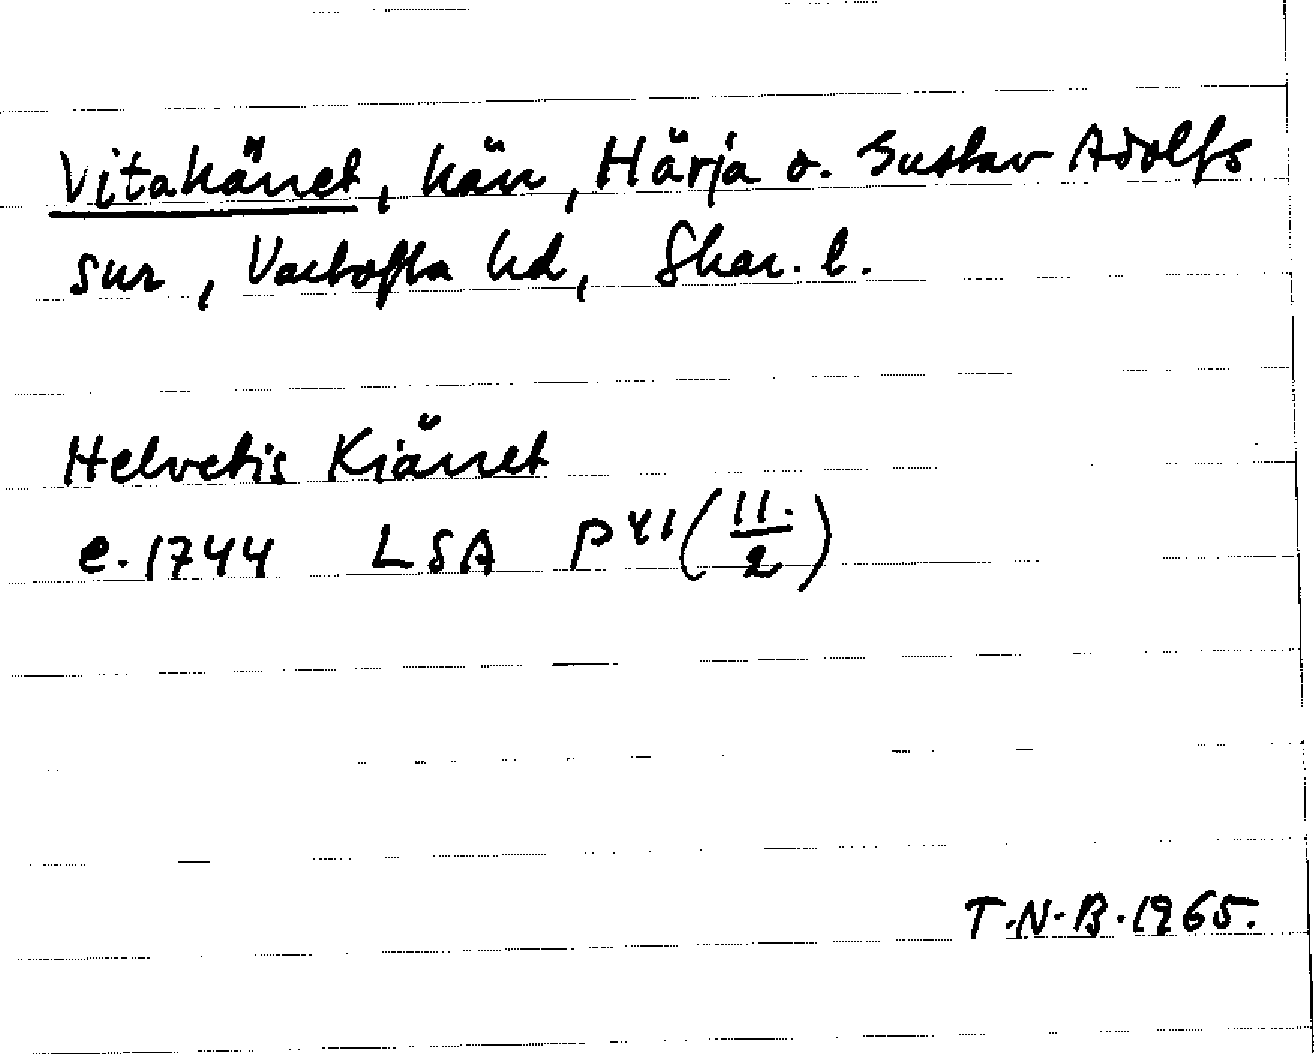 Vitakänet, kän, Härja o. Gustav Adolfs
snr, Vartofta hd, Skar. l.
Helvetis Kiänet
e. 1744 LSA P 41 (11. / 2)
T.N.B. 1965.